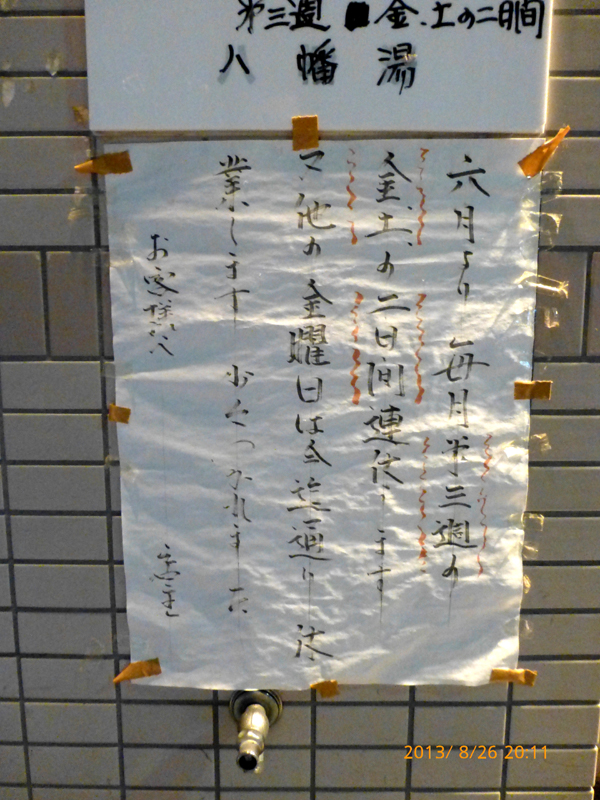 第三週 金、土の二日間
八幡湯
六月より毎月第三週の
金、土、の二日間連休します
他の金曜日は今迄通り休
業します
お客様各
店主
2013/ 8/26 20:11